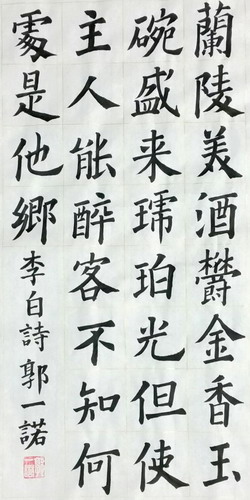 蘭陵美酒欝金香玉
碗盛来琋珀光但使
主人能醉客不知何
處是他鄉
李白詩郭一諾